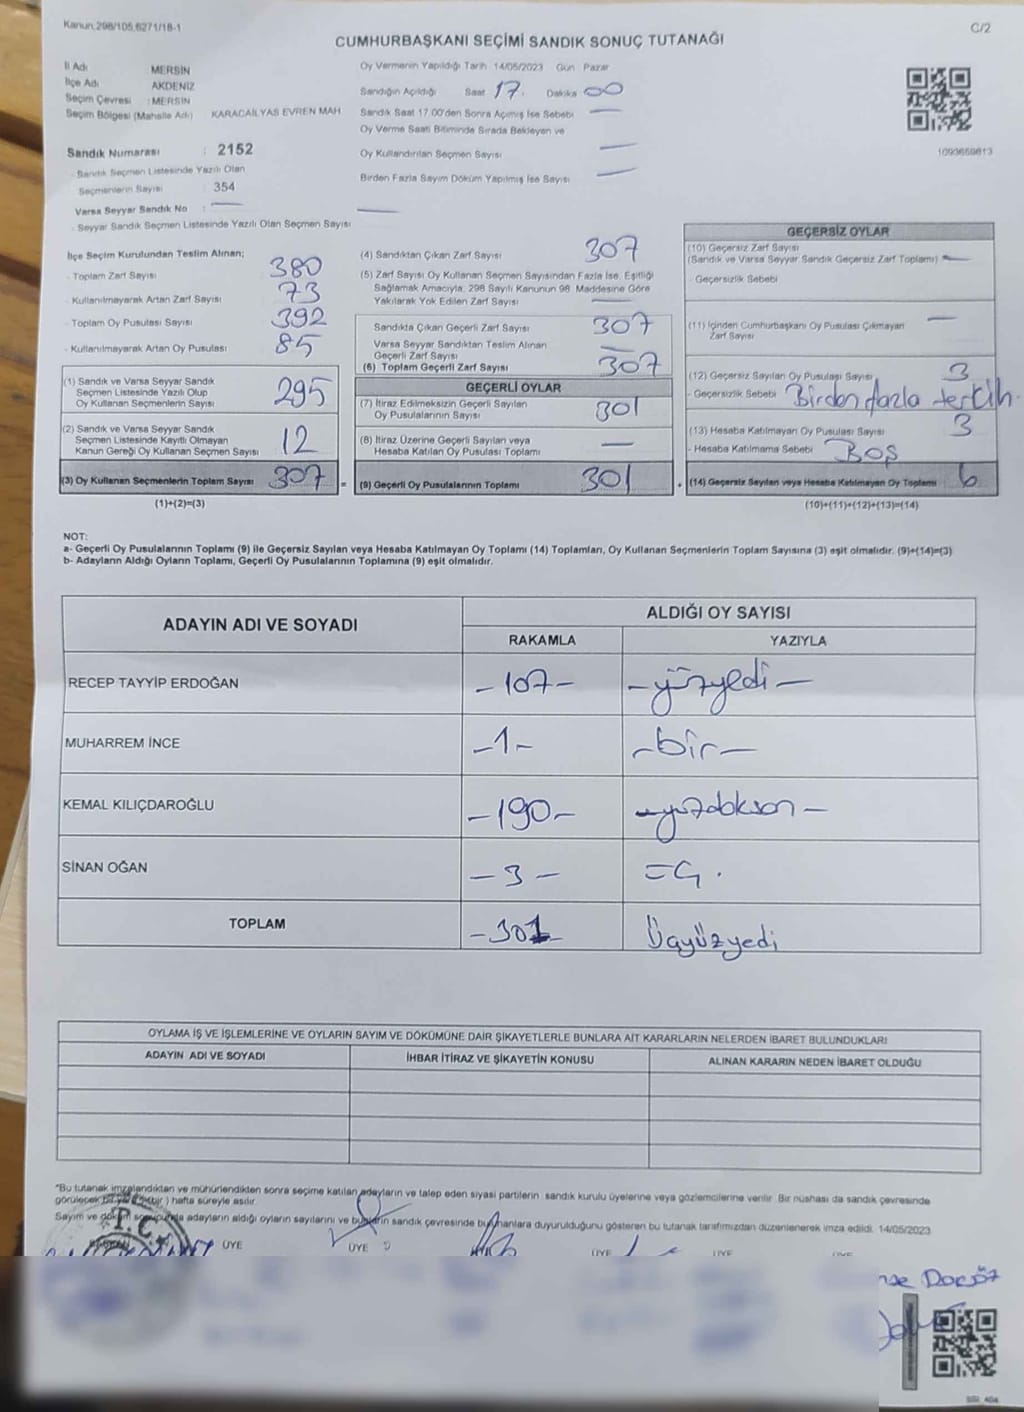 Kanun:298/105,6271/18-1
C/2
CUMHURBAŞKANI SEÇİMİ SANDIK SONUÇ TUTANAĞI
İl Adı MERSİN
İlçe Adı AKDENİZ
Seçim Çevresi : MERSİN
Seçim Bölgesi (Mahalle Adı) KARACAİLYAS EVREN MAH
Sandık Numarası : 2152
- Sandık Seçmen Listesinde Yazılı Olan
Seçmenlerin Sayısı : 354
Varsa Seyyar Sandık No :
- Seyyar Sandık Seçmen Listesinde Yazılı Olan Seçmen Sayısı
Oy Vermenin Yapıldığı Tarih 14/05/2023 Gün Pazar
Sandığın Açıldığı Saat 17. Dakika 00
Sandık Saat 17.00'den Sonra Açılmış İse Sebebi
Oy Verme Saati Bitiminde Sırada Bekleyen ve
Oy Kullandırılan Seçmen Sayısı
Birden Fazla Sayım Döküm Yapılmış İse Sayısı
1093659613
İlçe Seçim Kurulundan Teslim Alınan;
- Toplam Zarf Sayısı 380
- Kullanılmayarak Artan Zarf Sayısı 73
- Toplam Oy Pusulası Sayısı 392
- Kullanılmayarak Artan Oy Pusulası 85
(1) Sandık ve Varsa Seyyar Sandık
Seçmen Listesinde Yazılı Olup
Oy Kullanan Seçmenlerin Sayısı 295
(2) Sandık ve Varsa Seyyar Sandık
Seçmen Listesinde Kayıtlı Olmayan
Kanun Gereği Oy Kullanan Seçmen Sayısı 12
(3) Oy Kullanan Seçmenlerin Toplam Sayısı 307 =
(1)+(2)=(3)
(4) Sandıktan Çıkan Zarf Sayısı 307
(5) Zarf Sayısı Oy Kullanan Seçmen Sayısından Fazla İse, Eşitliği
Sağlamak Amacıyla, 298 Sayılı Kanunun 98. Maddesine Göre
Yakılarak Yok Edilen Zarf Sayısı
Sandıkta Çıkan Geçerli Zarf Sayısı 307
Varsa Seyyar Sandıktan Teslim Alınan
Geçerli Zarf Sayısı
(6) Toplam Geçerli Zarf Sayısı 307
GEÇERLİ OYLAR
(7) İtiraz Edilmeksizin Geçerli Sayılan
Oy Pusulalarının Sayısı 301
(8) İtiraz Üzerine Geçerli Sayılan veya
Hesaba Katılan Oy Pusulası Toplamı
(9) Geçerli Oy Pusulalarının Toplamı 301 +
GEÇERSİZ OYLAR
(10) Geçersiz Zarf Sayısı
(Sandık ve Varsa Seyyar Sandık Geçersiz Zarf Toplamı)
- Geçersizlik Sebebi
(11) İçinden Cumhurbaşkanı Oy Pusulası Çıkmayan
Zarf Sayısı
(12) Geçersiz Sayılan Oy Pusulası Sayısı 3
- Geçersizlik Sebebi Birden fazla tercih.
(13) Hesaba Katılmayan Oy Pusulası Sayısı 3
- Hesaba Katılmama Sebebi BOŞ
(14) Geçersiz Sayılan veya Hesaba Katılmayan Oy Toplamı 6
(10)+(11)+(12)+(13)=(14)
NOT:
a- Geçerli Oy Pusulalarının Toplamı (9) ile Geçersiz Sayılan veya Hesaba Katılmayan Oy Toplamı (14) Toplamları, Oy Kullanan Seçmenlerin Toplam Sayısına (3) eşit olmalıdır. (9)+(14)=(3)
b- Adayların Aldığı Oyların Toplamı, Geçerli Oy Pusulalarının Toplamına (9) eşit olmalıdır.
ADAYIN ADI VE SOYADI
ALDIĞI OY SAYISI
RAKAMLA YAZIYLA
RECEP TAYYİP ERDOĞAN -107- -yüzyedi-
MUHARREM İNCE -1- -bir-
KEMAL KILIÇDAROĞLU -190- -yüzdokson-
SİNAN OĞAN -3-
TOPLAM -301- Üçyüzyedi
OYLAMA İŞ VE İŞLEMLERİNE VE OYLARIN SAYIM VE DÖKÜMÜNE DAİR ŞİKAYETLERLE BUNLARA AİT KARARLARIN NELERDEN İBARET BULUNDUKLARI
ADAYIN ADI VE SOYADI İHBAR İTİRAZ VE ŞİKAYETİN KONUSU ALINAN KARARIN NEDEN İBARET OLDUĞU
"Bu tutanak imzalandıktan ve mühürlendikten sonra seçime katılan adayların ve talep eden siyasi partilerin sandık kurulu üyelerine veya gözlemcilerine verilir. Bir nüshası da sandık çevresinde
görülecek bir yere (bir) hafta süreyle asılır.
Sayım ve döküm sonucunda adayların aldığı oyların sayılarını ve bunların sandık çevresinde bulunanlara duyurulduğunu gösteren bu tutanak tarafımızdan düzenlenerek imza edildi. 14/05/2023
T.C.
ÜYE ÜYE ÜYE ÜYE